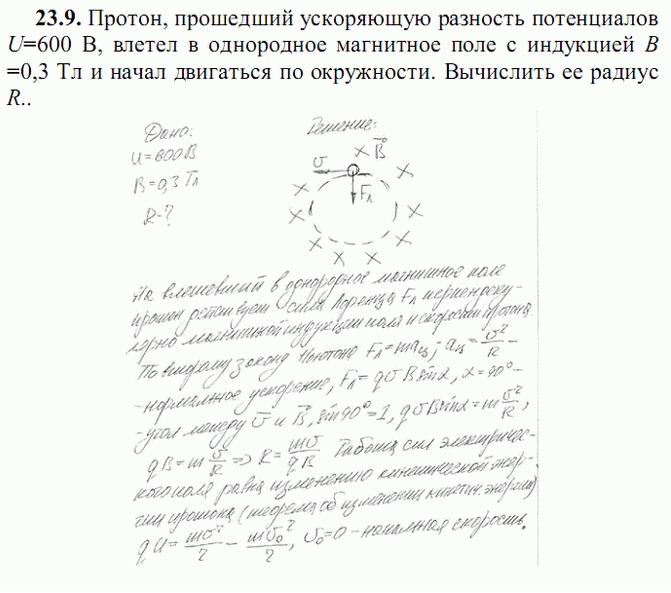 23.9. Протон, прошедший ускоряющую разность потенциалов
U=600 В, влетел в однородное магнитное поле с индукцией B
=0,3 Тл и начал двигаться по окружности. Вычислить ее радиус
R..
Дано:
U=600В
B=0,3 Тл
R-?
Решение:
B
υ
Fл
На влетевший в однородное магнитное поле
протон действует сила Лоренца Fл перпендику-
лярно магнитной индукции поля и скорости протона.
По второму закону Ньютона Fл=maц; aц=υ²/R -
-нормальное ускорение, Fл=qυBsinα, α=90°-
-угол между υ и B, sin90°=1, qυBsinα=mυ²/R,
qB=mυ/R => R=mυ/qB Работа сил электричес-
кого поля равна изменению кинетической энер-
гии протона (теорема об изменении кинетич. энергии)
qU=mυ²/2 - mυ₀²/2, υ₀=0-начальная скорость.